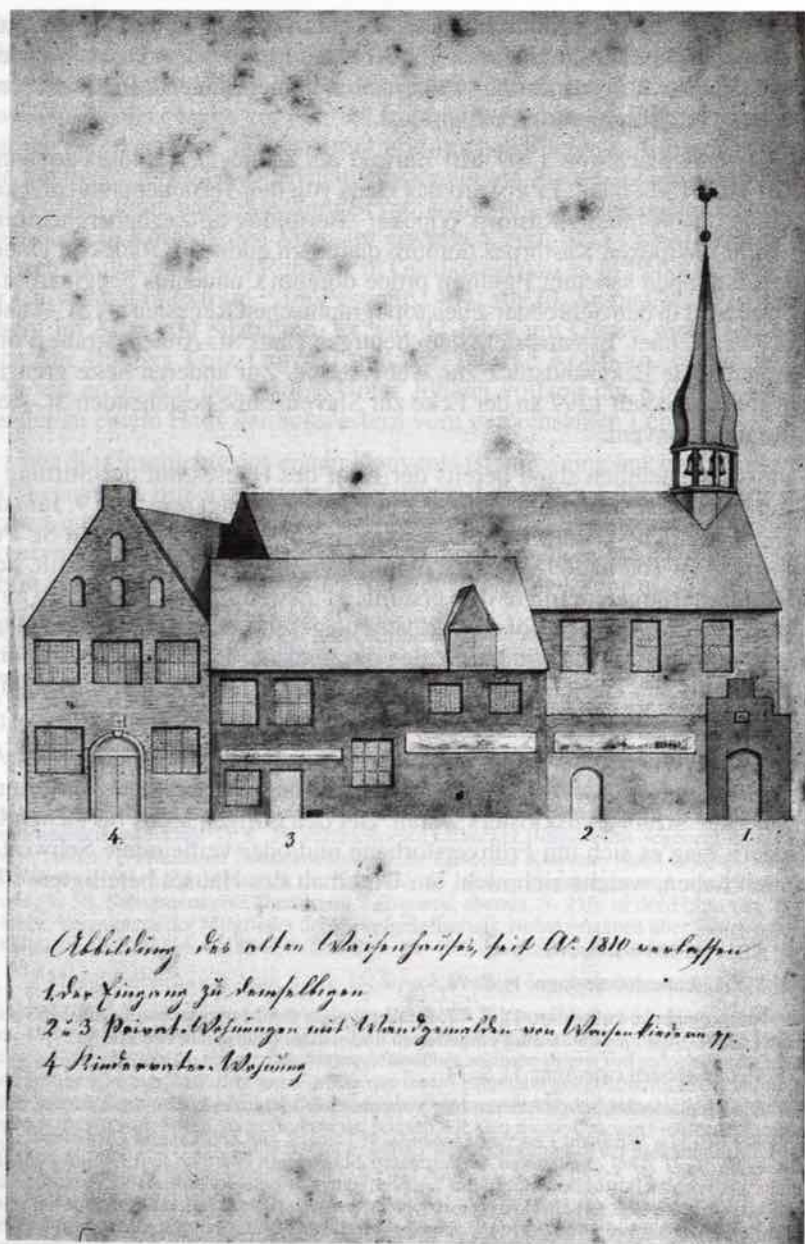 4. 3 2. 1.
Abbildung des alten Waisenhauses, seit Aº 1810 verlassen
1. der Eingang zu demselbigen
2 u 3 Privat-Wohnungen mit Wandgemalden von Waisenkindern pp.
4 Kindervater-Wohnung